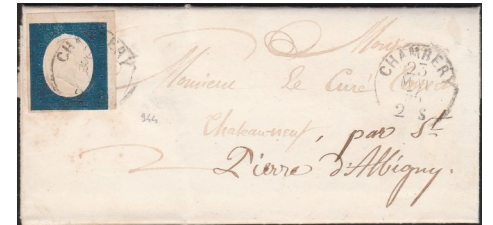 CHAMBERY
Mon
CHAMBERY
25
2 S
Monsieur Le Curé
944
Chateauneuf, par St
Pierre d'Albigny.